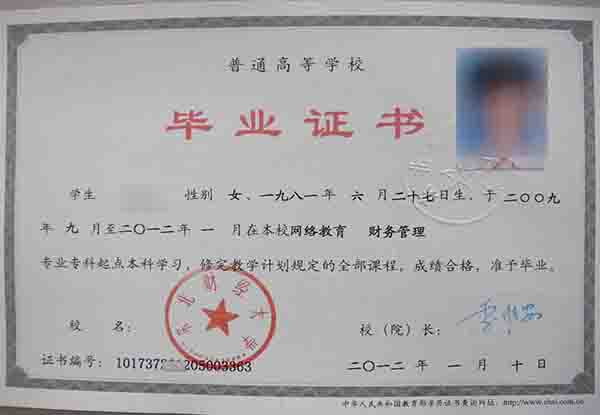 普通高等学校
毕业证书
学生 性别 女、一九八一年 六 月二十七日生、于二〇〇九
年 九 月至二〇一二年 一 月在本校网络教育 财务管理
专业专科起点本科学习，修完教学计划规定的全部课程，成绩合格，准予毕业。
东北财经大学
校 名： 校（院）长：
证书编号： 101737 205003363 二〇一二 年 一 月 十 日
中华人民共和国教育部学历证书查询网址：http://www.chsi.com.cn